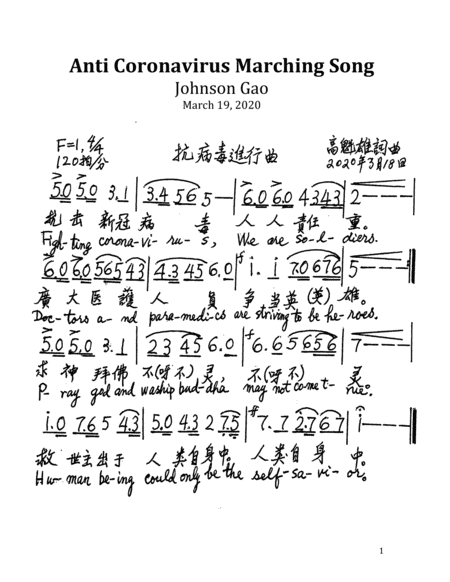 Anti Coronavirus Marching Song
Johnson Gao
March 19, 2020
F=1, 4/4
120拍/分
抗病毒進行曲
高魁雄詞曲
2020年3月18日
5.0 5.0 3.1 | 3.4 56 5— | 6.0 6.0 4343 | 2———
抗击新冠病毒 人人責任重。
Figh-ting corona-vi-ru-s, We are so-l-diers.
6.0 6.0 565 43 | 4.3 45 6.0 | i. i 7.0 676 | 5———
廣大医護人員争当英(英)雄。
Doc-tors a-nd para-medi-cs are striving to be he-roes.
5.0 5.0 3.1 | 23 45 6.0 | 6.6 5656 | 7———
求神拜佛不(呀不)灵, 不(呀不)灵。
P-ray god and waship bud-dha may not come t-rue.
i.0 7.6 5 4.3 | 5.0 4.3 2 7.5 | 7.7 2.767 | i———
救世主出于人类自身中。人类自身中。
Hu-man be-ing could only be the self-sa-vi-or.
1